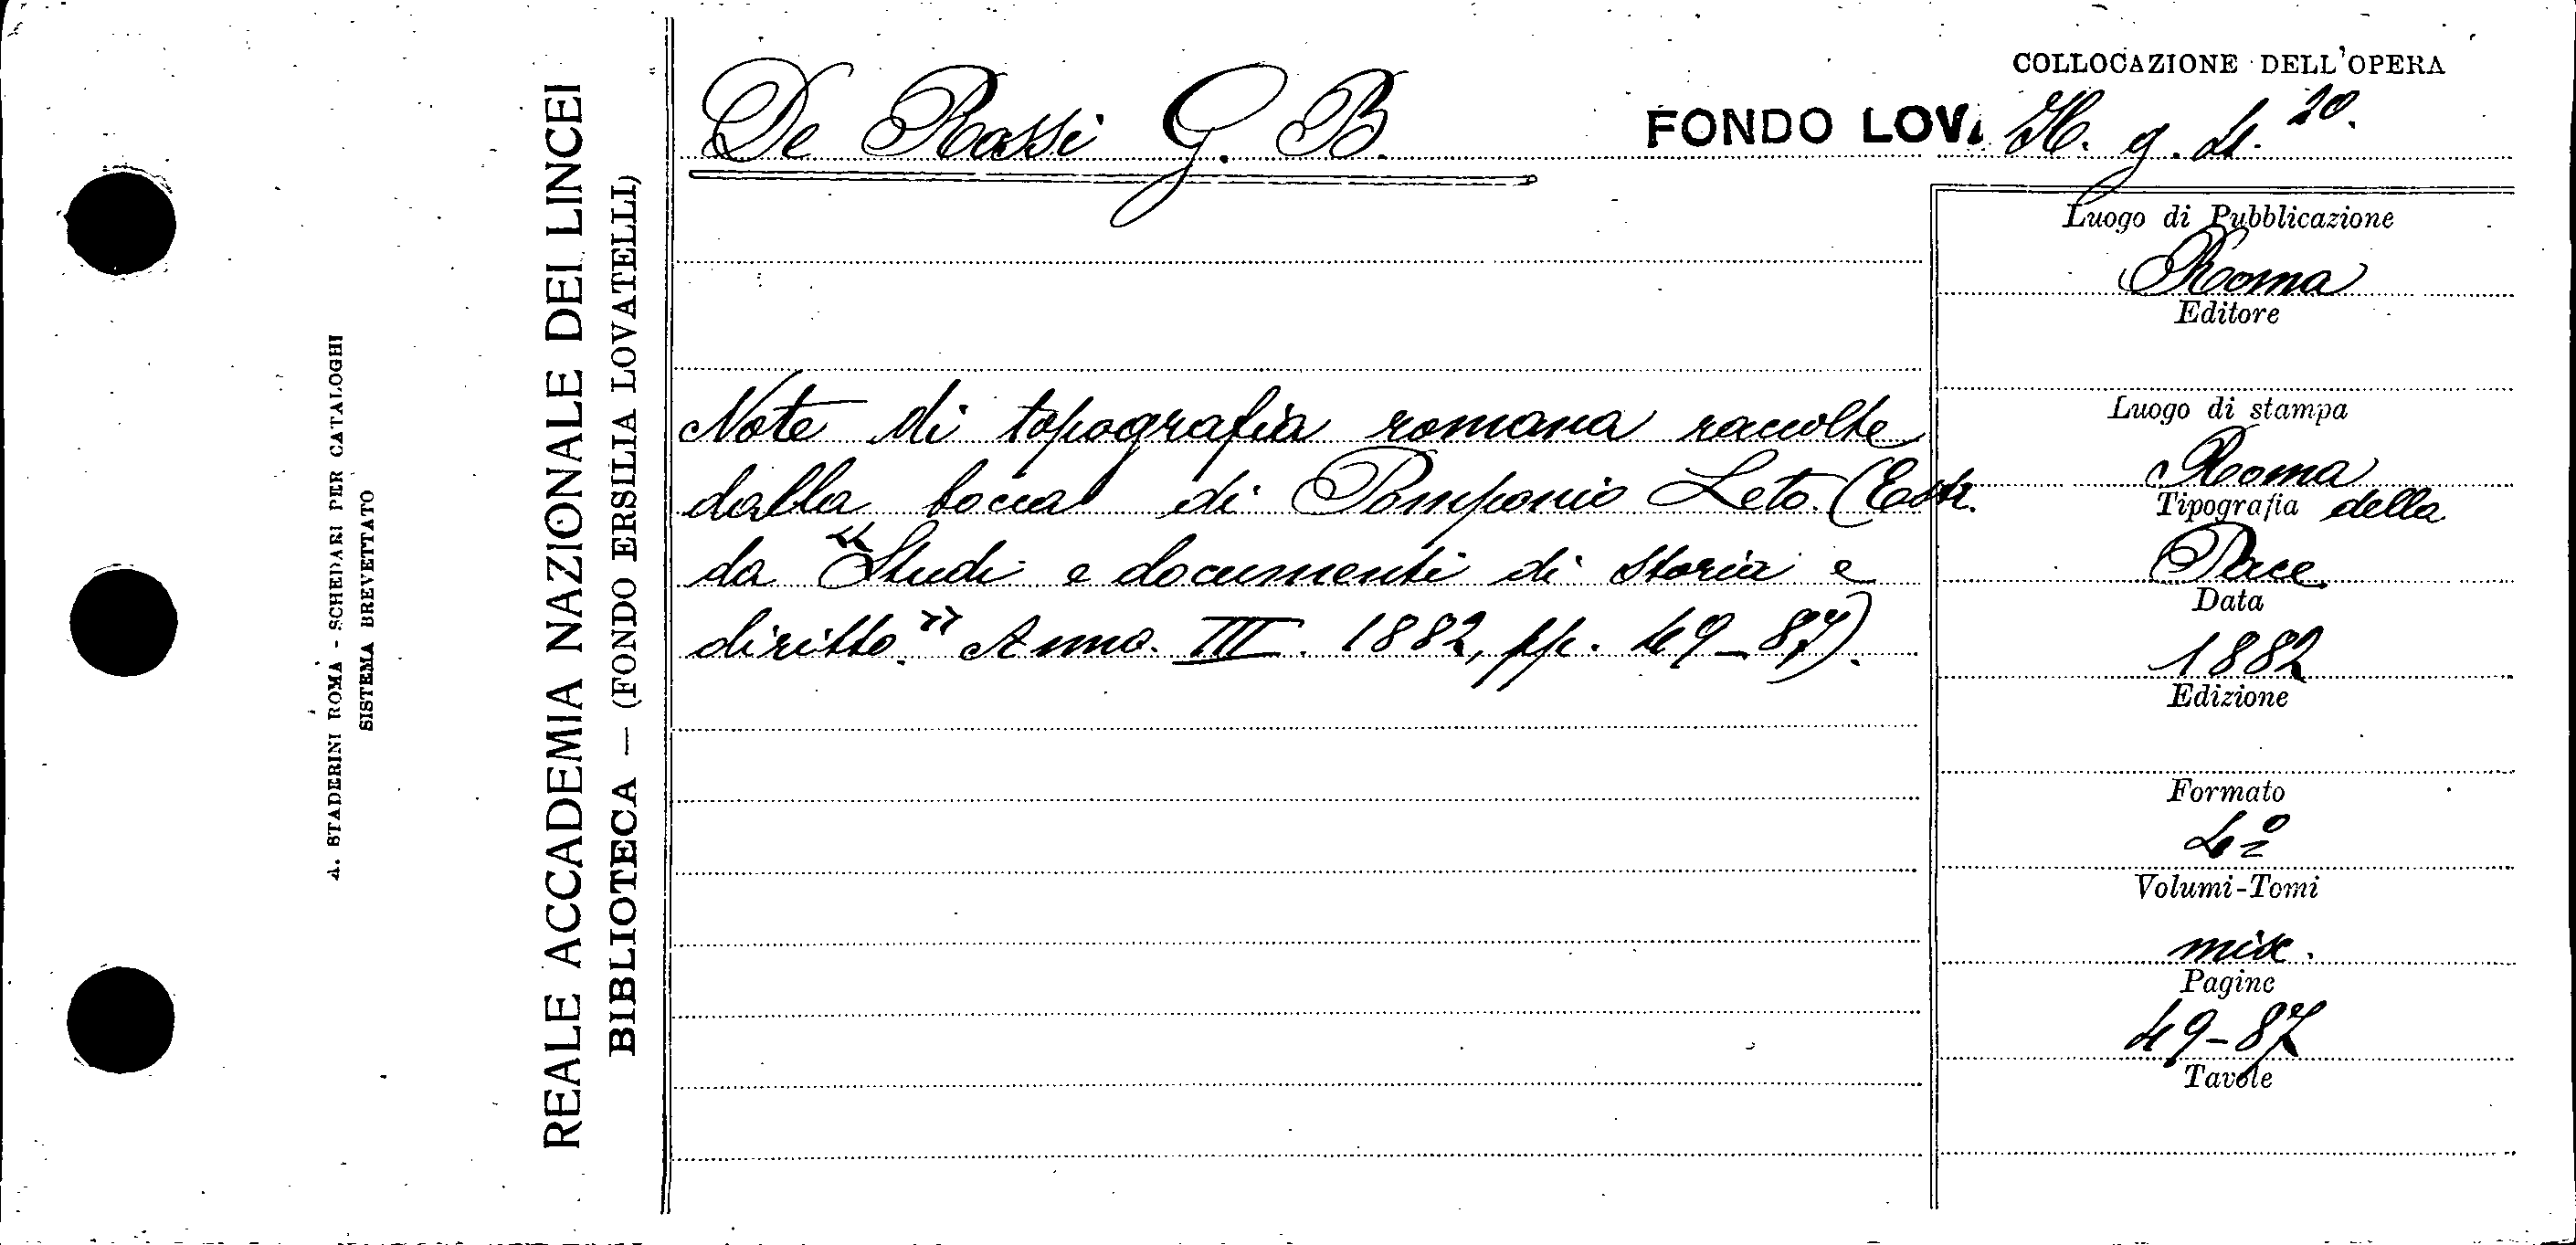 A. STADERINI ROMA - SCHEDARI PER CATALOGHI
SISTEMA BREVETTATO
REALE ACCADEMIA NAZIONALE DEI LINCEI
BIBLIOTECA — (FONDO ERSILIA LOVATELLI)
De Rossi G. B.
Note di topografia romana raccolte
dalla bocca di Pomponio Leto. (Estr.
da "Studi e documenti di storia e
diritto." Anno. III. 1882, pp. 49-87).
COLLOCAZIONE DELL'OPERA
FONDO LOV. H. g. 4. 20.
Luogo di Pubblicazione
Roma
Editore
Luogo di stampa
Roma
Tipografia della
Pace
Data
1882
Edizione
Formato
4º
Volumi-Tomi
misc.
Pagine
49-87
Tavole